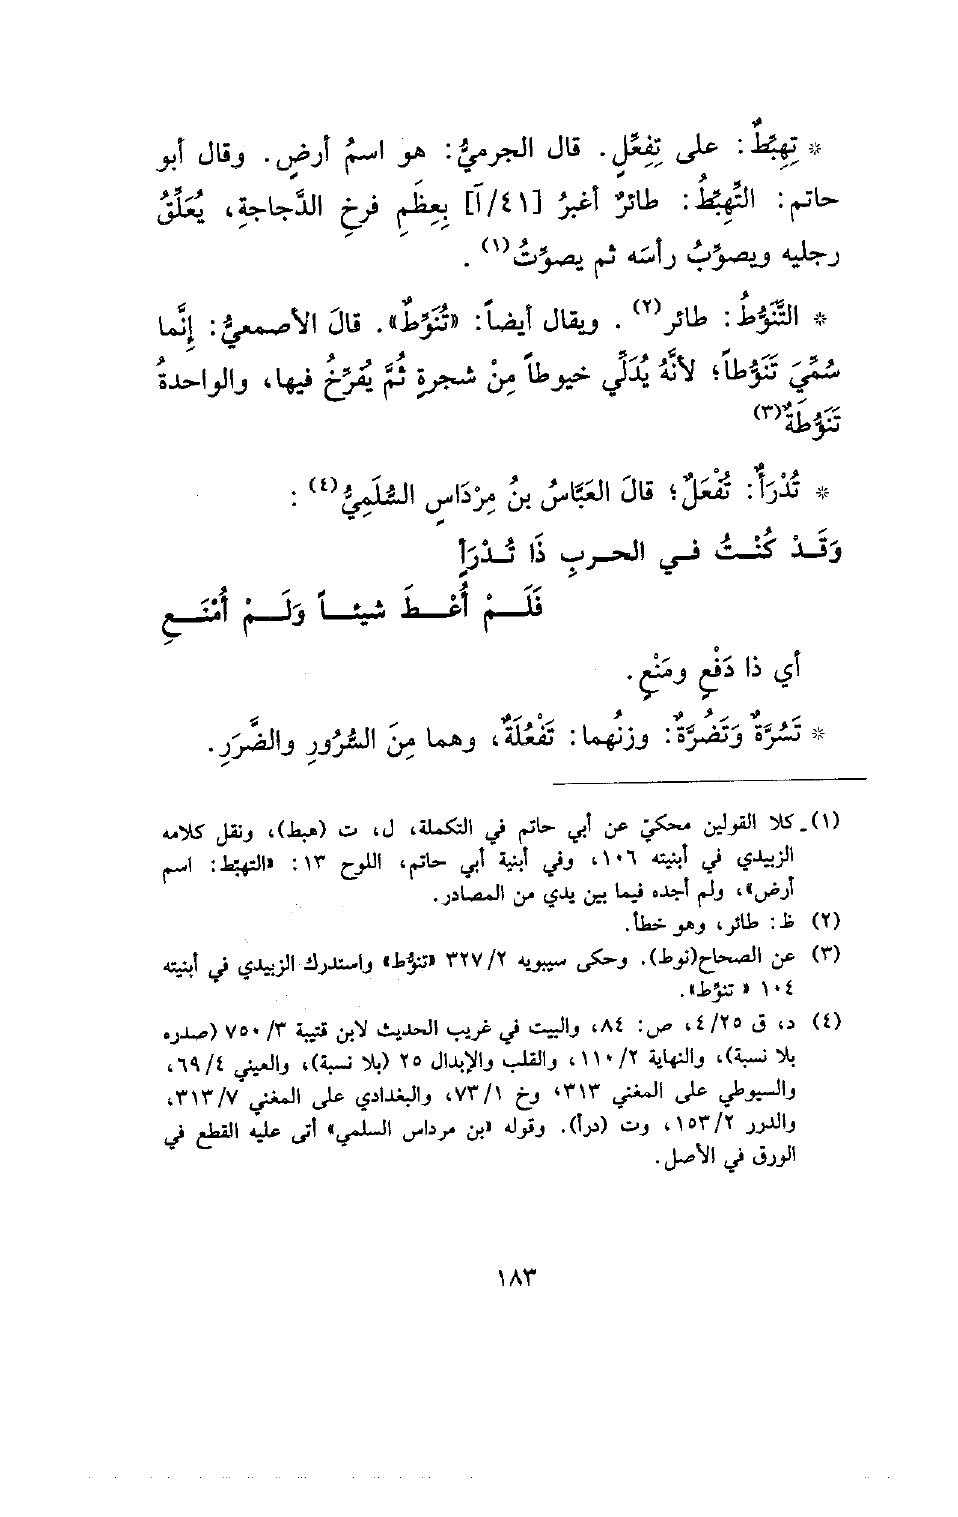 * تِهِبِّطٌ: على تِفِعِّلٍ. قال الجرميُّ: هو اسمُ أرضٍ. وقال أبو
حاتم: التِّهِبِّطُ: طائرٌ أغبرُ [٤١/آ] بِعِظَمِ فرخِ الدَّجاجةِ، يُعَلِّقُ
رجليه ويصوِّبُ رأسَه ثم يصوِّتُ(١).
* التَّنَوُّطُ: طائر(٢). ويقال أيضاً: «تُنَوِّطٌ». قالَ الأصمعيُّ: إِنَّما
سُمِّيَ تَنَوُّطاً؛ لأنَّهُ يُدَلِّي خيوطاً مِنْ شجرةٍ ثُمَّ يُفَرِّخُ فيها، والواحدةُ
تَنَوُّطَةٌ(٣)
* تُدْرَأٌ: تُفْعَلٌ؛ قالَ العَبَّاسُ بنُ مِرْدَاسٍ السُّلَمِيُّ(٤):
وَقَدْ كُنْتُ في الحربِ ذَا تُدْرَأٍ
فَلَمْ أُعْطَ شيئاً وَلَمْ أُمْنَعِ
أي ذا دَفْعٍ ومَنْعٍ.
* تَسُرَّةٌ وَتَضُرَّةٌ: وزنُهما: تَفْعُلَةٌ، وهما مِنَ السُّرُورِ والضَّرَرِ.
(١) كلا القولين محكيّ عن أبي حاتم في التكملة، ل، ت (هبط)، ونقل كلامه
الزبيدي في أبنيته ١٠٦، وفي أبنية أبي حاتم، اللوح ١٣: «التهبّط: اسم
أرض»، ولم أجده فيما بين يدي من المصادر.
(٢) ظ: طائر، وهو خطأ.
(٣) عن الصحاح(نوط). وحكى سيبويه ٣٢٧/٢ «تنوُّط» واستدرك الزبيدي في أبنيته
١٠٤ « تنوِّط».
(٤) د، ق ٤/٢٥، ص: ٨٤، والبيت في غريب الحديث لابن قتيبة ٧٥٠/٣ (صدره
بلا نسبة)، والنهاية ١١٠/٢، والقلب والإبدال ٢٥ (بلا نسبة)، والعيني ٦٩/٤،
والسيوطي على المغني ٣١٣، وخ ٧٣/١، والبغدادي على المغني ٣١٣/٧،
والدرر ١٥٣/٢، وت (درأ). وقوله «بن مرداس السلمي» أتى عليه القطع في
الورق في الأصل.
١٨٣